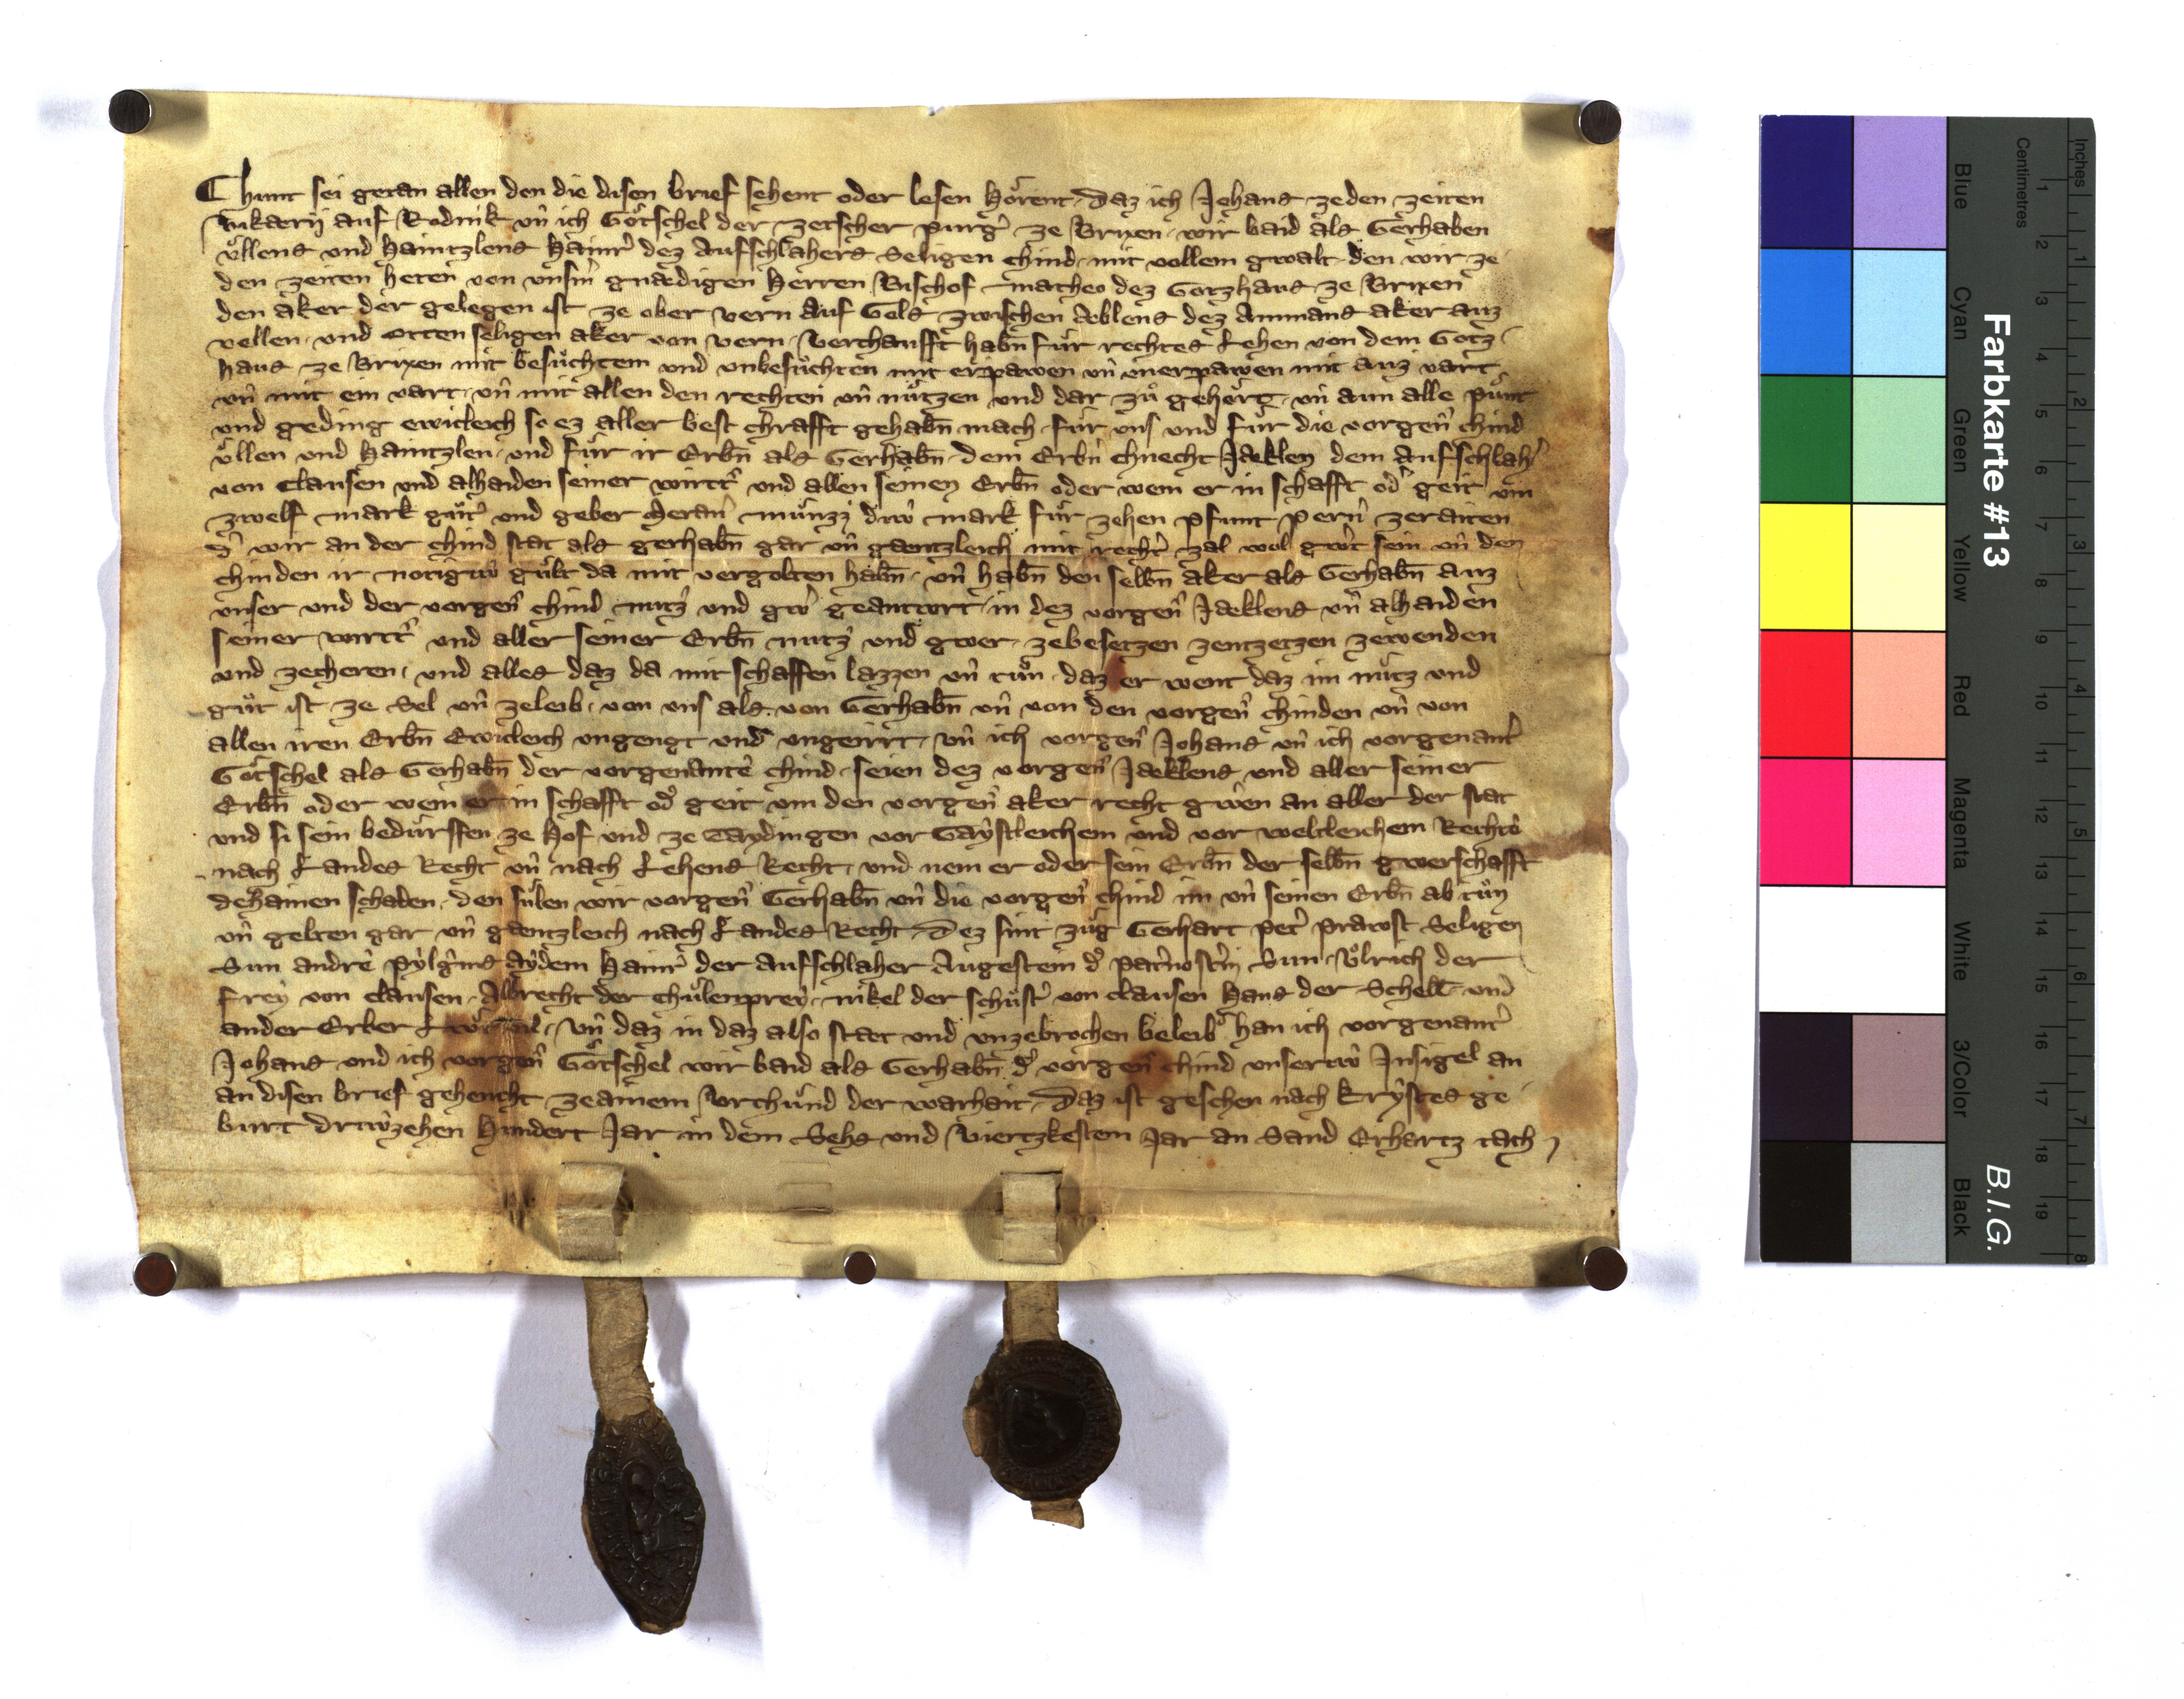 Chunt sei getan allen den die disen brief sehent oder lesen hörent, Daz ich Johans ze den zeiten
vikarij auf Rodnik vn̄ ich Götschel der zetscher purg̕ ze Brixen, wir baid als Gerhaben
vͦllens und Haintzlens Hainr̕ dez Aufschlahers Seligen chind, mit vollem gwalt, den wir ze
den zeiten heten von vnsm̕ gnaedigen Herren Bischof Matheo dez Gotzhaus ze Brixen
den aker der gelegen ist ze ober vern auf Gels zwischen Aeblens dez Ammans aker auz
vellen, und Otten seligen aker von vern, Verchaufft habn̄ fuͤr rechtes Lehen von dem Gotz
haus ze Brixen mit besuͤchtem und vnbesuͤchten mit erpawen vn̄ vnerpawen mit auz vart
vn̄ mit ein vart, vn̄ mit allen den rechten vn̄ nuͤtzen und dar zuͦ gehoͤrt, vn̄ aun alle puͤnt
und geding ewicleich so ez aller best chrafft gehabn̄ mach, fuͤr vns und fuͤr die vorgen̄ chind
vͦllen und Haintzlen, und fuͤr ir Erbn̄ als Gerhabn̄, dem Erbn̄ chnecht Jaeklen dem Aufschlah̕
von Clausen und alhaiden seiner wirtt̕ und allen seinen Erbn̄ oder wem er in schafft od̕ geit vm
zwelf mark guͤt̕ und geber Meran̕ muͤnzz, diw̕ mark fuͤr zehen pfunt pern̕ zeraiten
d̕ wir an der chind stat als gerhabn̄ gar vn̄ gaentzleich mit recht̕ zal wol gw̕t sein vn̄ den
chinden ir notigiw̕ guͤlt da mit vergolten habn̄, vn̄ habn̄ den selbn̄ aker als Gerhabn̄ auz
vnser und der vorgen̄ chind nutz und gw̕ geantwrt, in dez vorgen̄ Jaeklens vn̄ alhaiden
seiner wirtt̕ und aller seiner Erbn̄ nutz und gwer, zebesetzen zentzetzen zewenden
und zecheren, und alles daz da mit schaffen lazzen vn̄ tuͦn, daz er went daz im nuͤtz und
guͤt ist ze Sel vn̄ zeleib, von vns als von Gerhabn̄ vn̄ von den vorgen̄ chinden vn̄ von
allen iren Erbn̄ Ewicleich vngengt und vngeirrt, vn̄ ich vorgen̄ Johans vn̄ ich vorgenant̕
Götschel als Gerhabn̄ der vorgenante̕ chind, seien dez vorgen̄ Jaeklens und aller seiner
Erbn̄ oder wem er in schafft od̕ geit vm den vorgen̄ aker recht gw̕en an aller der stat
und si sein beduͤrffen ze Hof und ze Taydingen vor Gaystleichem und vor weltleichem Recht̕
nach Landes Recht vn̄ nach Lehens Recht, und nem er oder sein Erbn̄ der selbn̄ gwerschafft
dehainen schaden, den suͤlen wir vorgen̄ Gerhabn̄ vn̄ die vorgen̄ chind im vn̄ seinen Erbn̄ ab tuͦn
vn̄ gelten gar vn̄ gaentzleich nach Landes Recht, Dez sint zuͤg Gerhart pet̕ prawst Seligen
Sun andre̕ pylg̕ms aydem Hainr̕ der aufschlaher Augestein d̕ pat̕nost̕in Sun, Vͦlrich der
frey von clausen, Albrecht der chuͤlenprey, nikel der schuͤst̕ von clausen Hans der Schell und
ander Erber, vn̄ daz in daz also staet und vnzebrochen beleib, han ich vorgenant̕
Johans und ich vorgen̄ Götschel wir baid als Gerhabn̄ d̕ vorgen̄ chind vnseriw̕ Jnsigel an
an disen brief gehencht zeainem Vrchuͤnd der warhait, Daz ist geschen nach Krystes ge
burt driw̕zehen Hundert Jar in dem Sehs und Viertzkestem Jar an Sand Erhartz tach
Farbkarte #13
B.I.G.
Blue Cyan Green Yellow Red Magenta White 3/Color Black
Centimetres 1 2 3 4 5 6 7 8 9 10 11 12 13 14 15 16 17 18 19
Inches 1 2 3 4 5 6 7 8